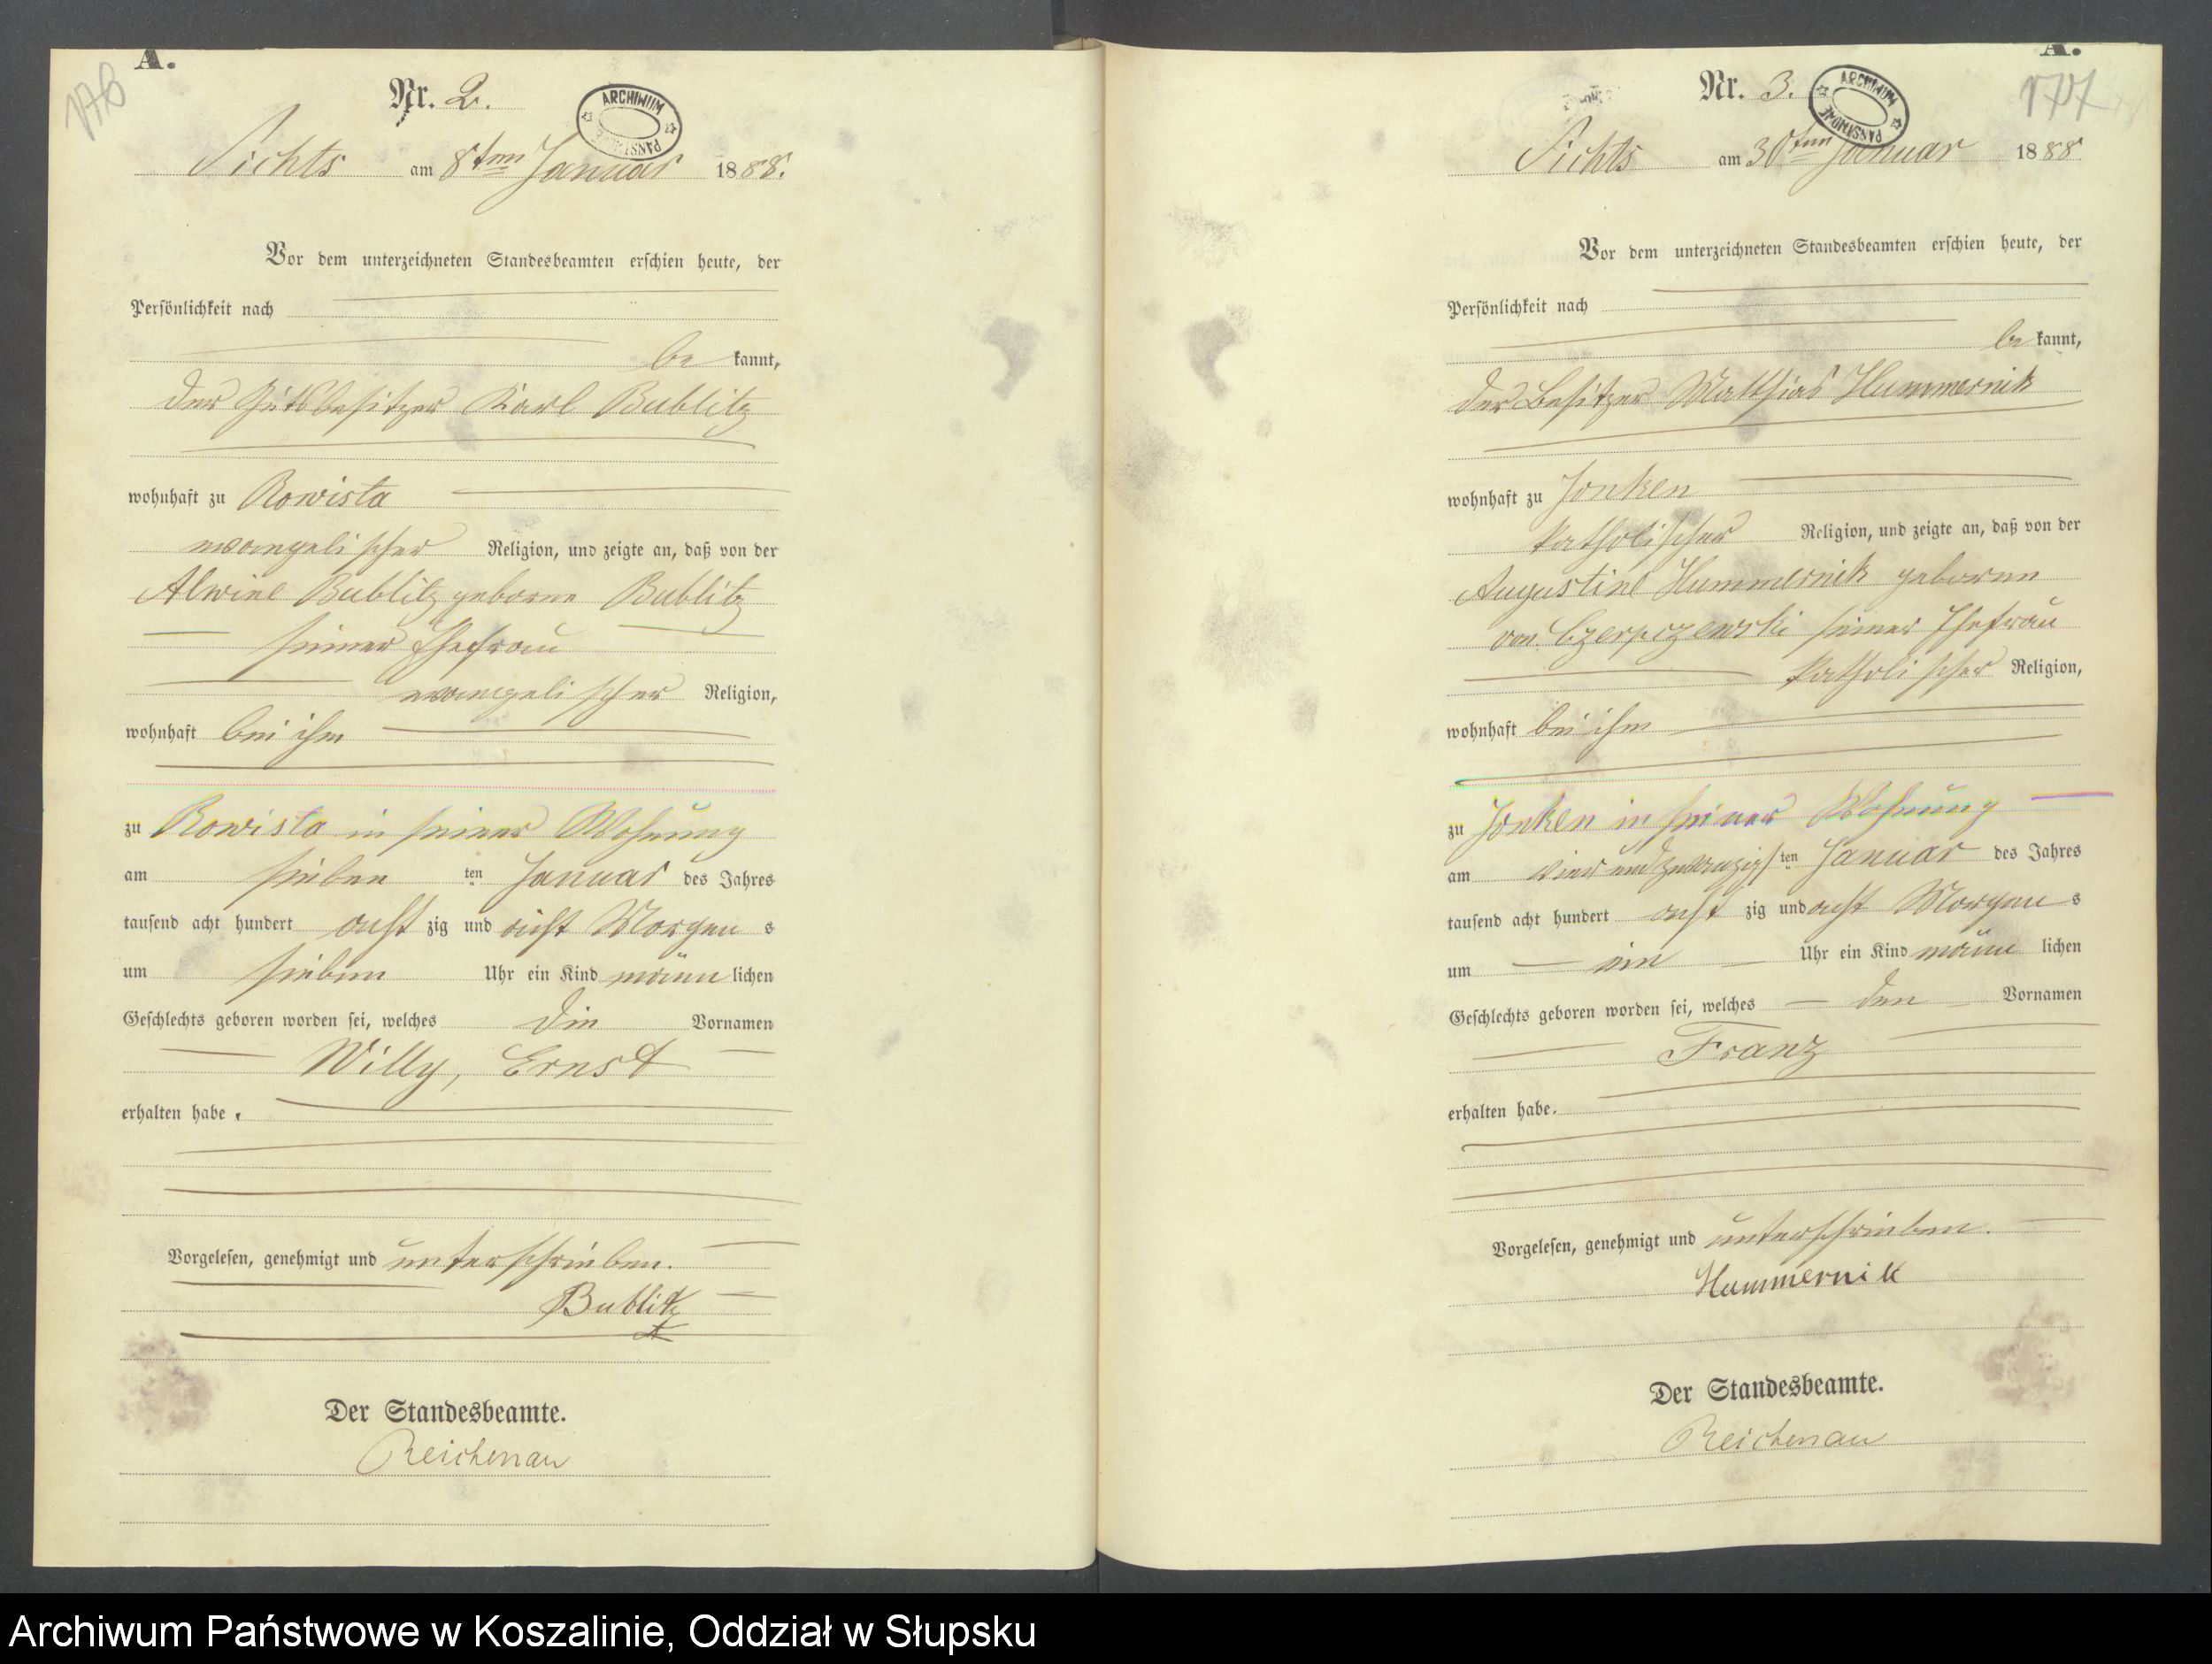 A.
Nr. 2.
ARCHIWUM
PAŃSTWOWE
Sichts am 8ten Januar 1888.
Vor dem unterzeichneten Standesbeamten erschien heute, der
Persönlichkeit nach
be kannt,
der Gutsbesitzer Karl Bublitz
wohnhaft zu Rowista
evangelischer Religion, und zeigte an, daß von der
Alwine Bublitz geborne Bublitz
seiner Ehefrau
evangelischer Religion,
wohnhaft bei ihm
zu Rowista in seiner Wohnung
am sieben ten Januar des Jahres
tausend acht hundert acht zig und acht Morgen s
um sieben Uhr ein Kind männ lichen
Geschlechts geboren worden sei, welches die Vornamen
Willy, Ernst
erhalten habe.
Vorgelesen, genehmigt und unterschrieben.
Bublitz
Der Standesbeamte.
Reichenau
A.
177
Nr. 3.
ARCHIWUM
PAŃSTWOWE
Sichts am 30ten Januar 1888
Vor dem unterzeichneten Standesbeamten erschien heute, der
Persönlichkeit nach
be kannt,
der Besitzer Mathias Hummernik
wohnhaft zu Jonken
katholischer Religion, und zeigte an, daß von der
Augustine Hummernik geborene
von Czerpczewski seiner Ehefrau
katholischer Religion,
wohnhaft bei ihm
zu Jonken in seiner Wohnung
am vier und zwanzigs ten Januar des Jahres
tausend acht hundert acht zig und acht Morgen s
um ein Uhr ein Kind männ lichen
Geschlechts geboren worden sei, welches den Vornamen
Franz
erhalten habe.
Vorgelesen, genehmigt und unterschrieben.
Hummernik
Der Standesbeamte.
Reichenau
Archiwum Państwowe w Koszalinie, Oddział w Słupsku